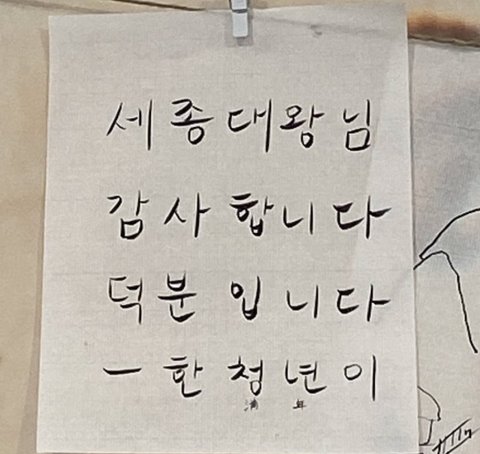 세종대왕님
감사합니다
덕분입니다
一한청년이